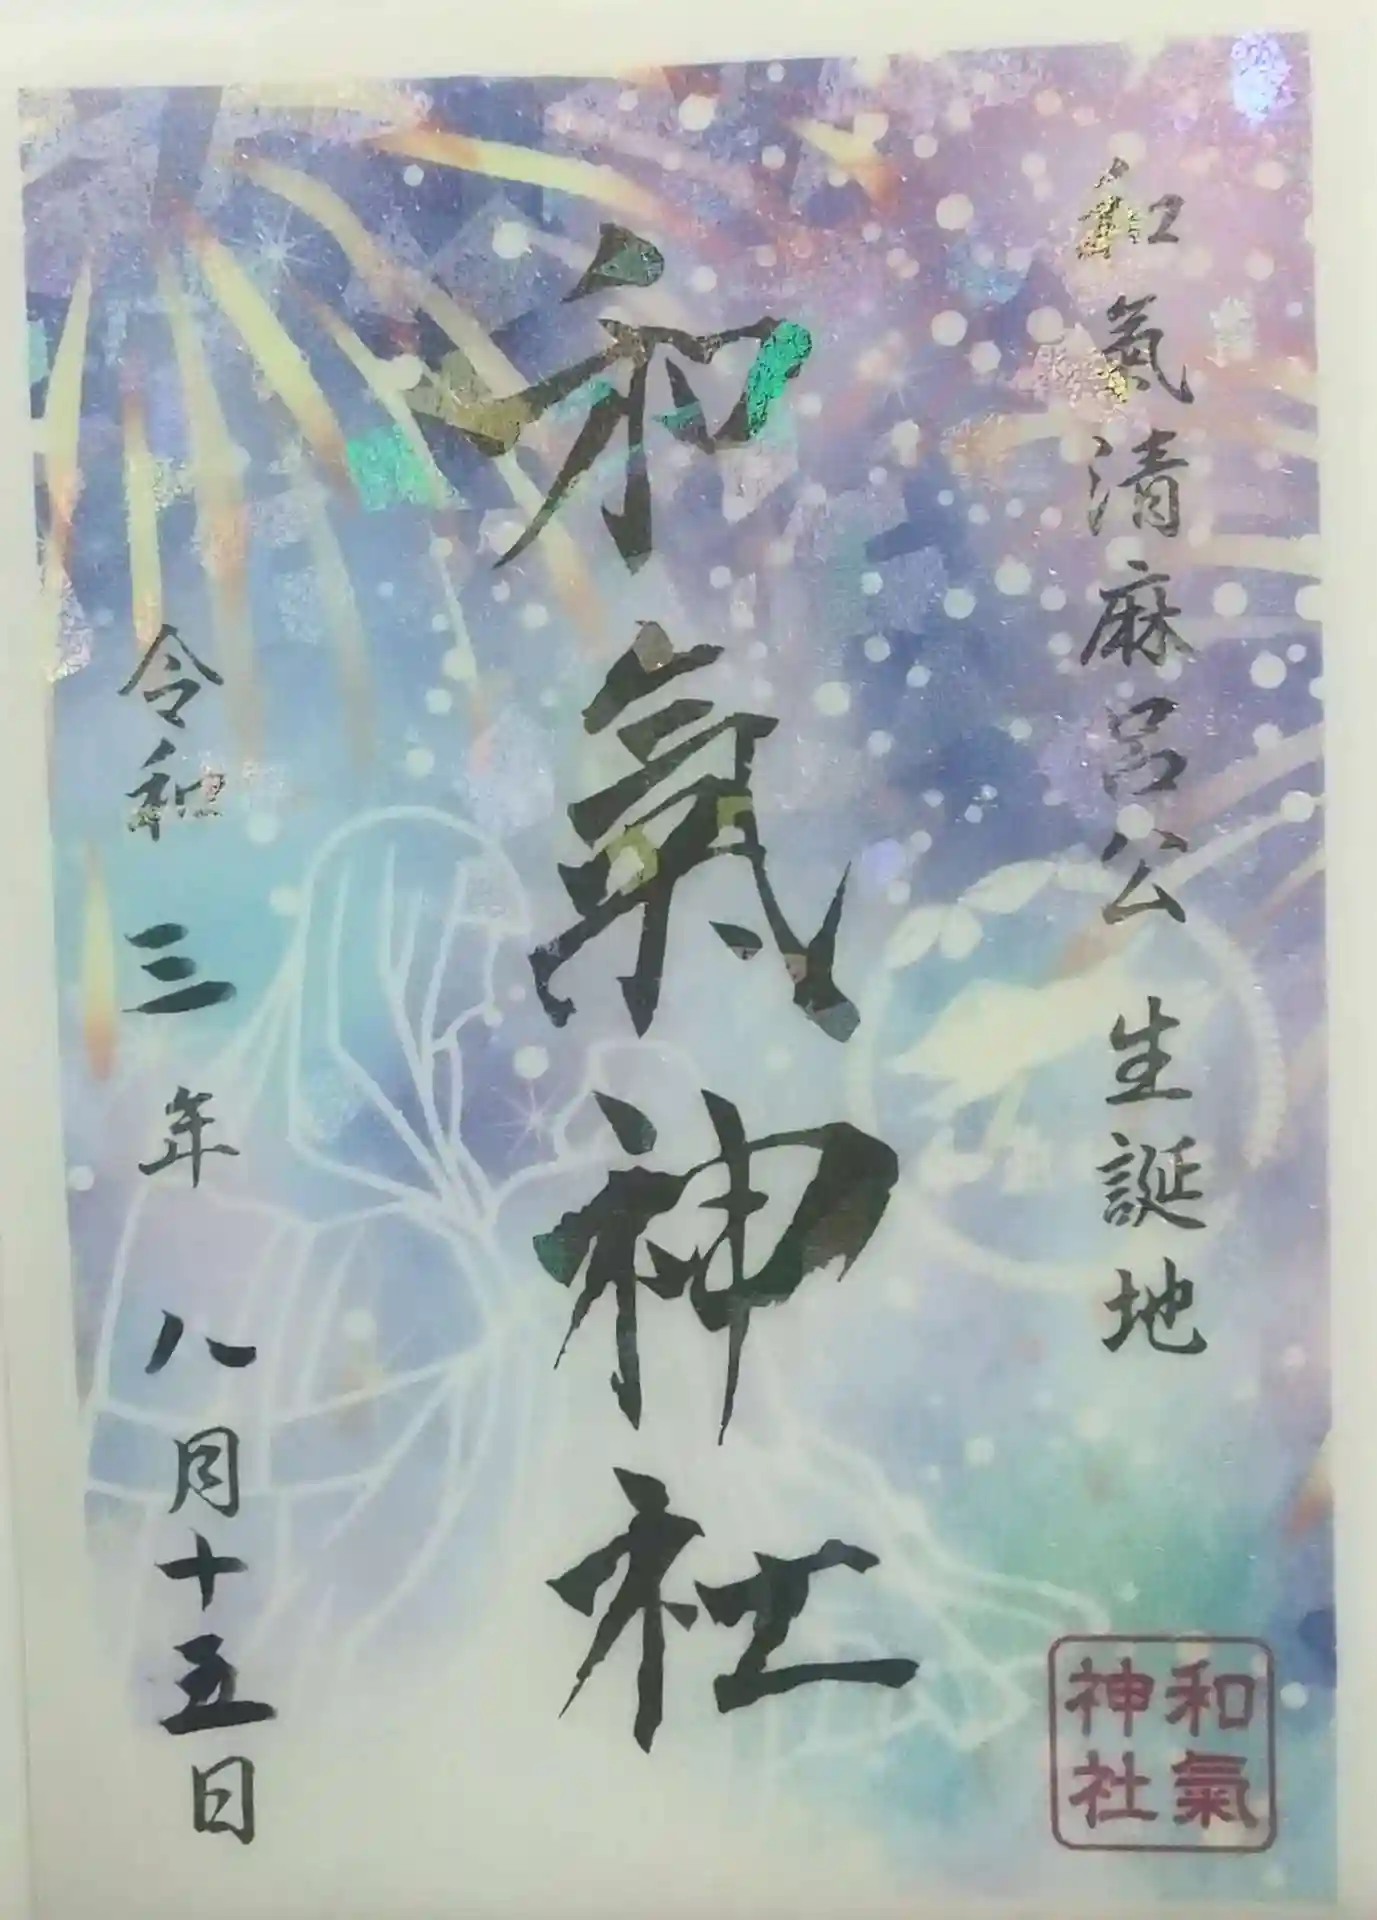 和氣清麻呂公 生誕地
和氣神社
令和三年八月十五日
和氣
神社